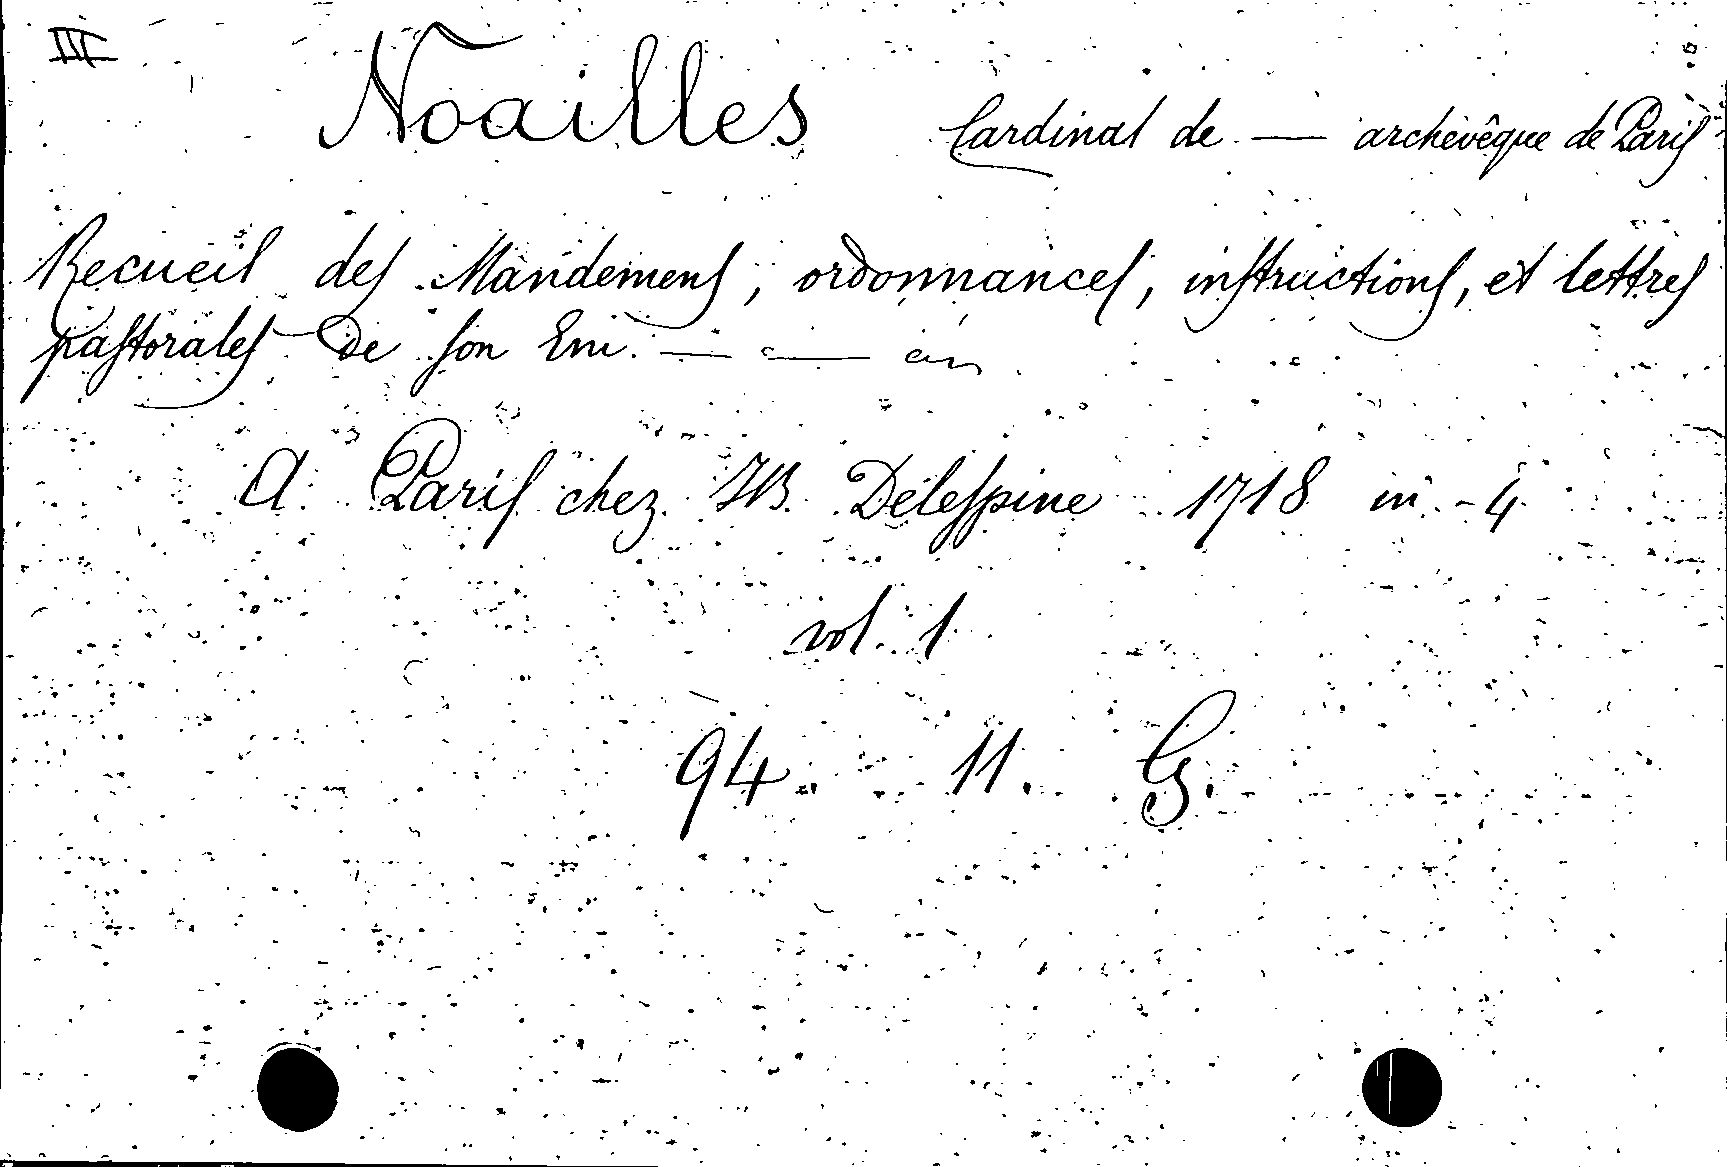 III
Noailles Cardinal de — archevêque de Paris
Recueil des Mandemens, ordonnances, instructions, et lettres
pastorales de son Em. —
A Paris chez JB. Delespine 1718 in-4
vol. 1
94. 11. G.